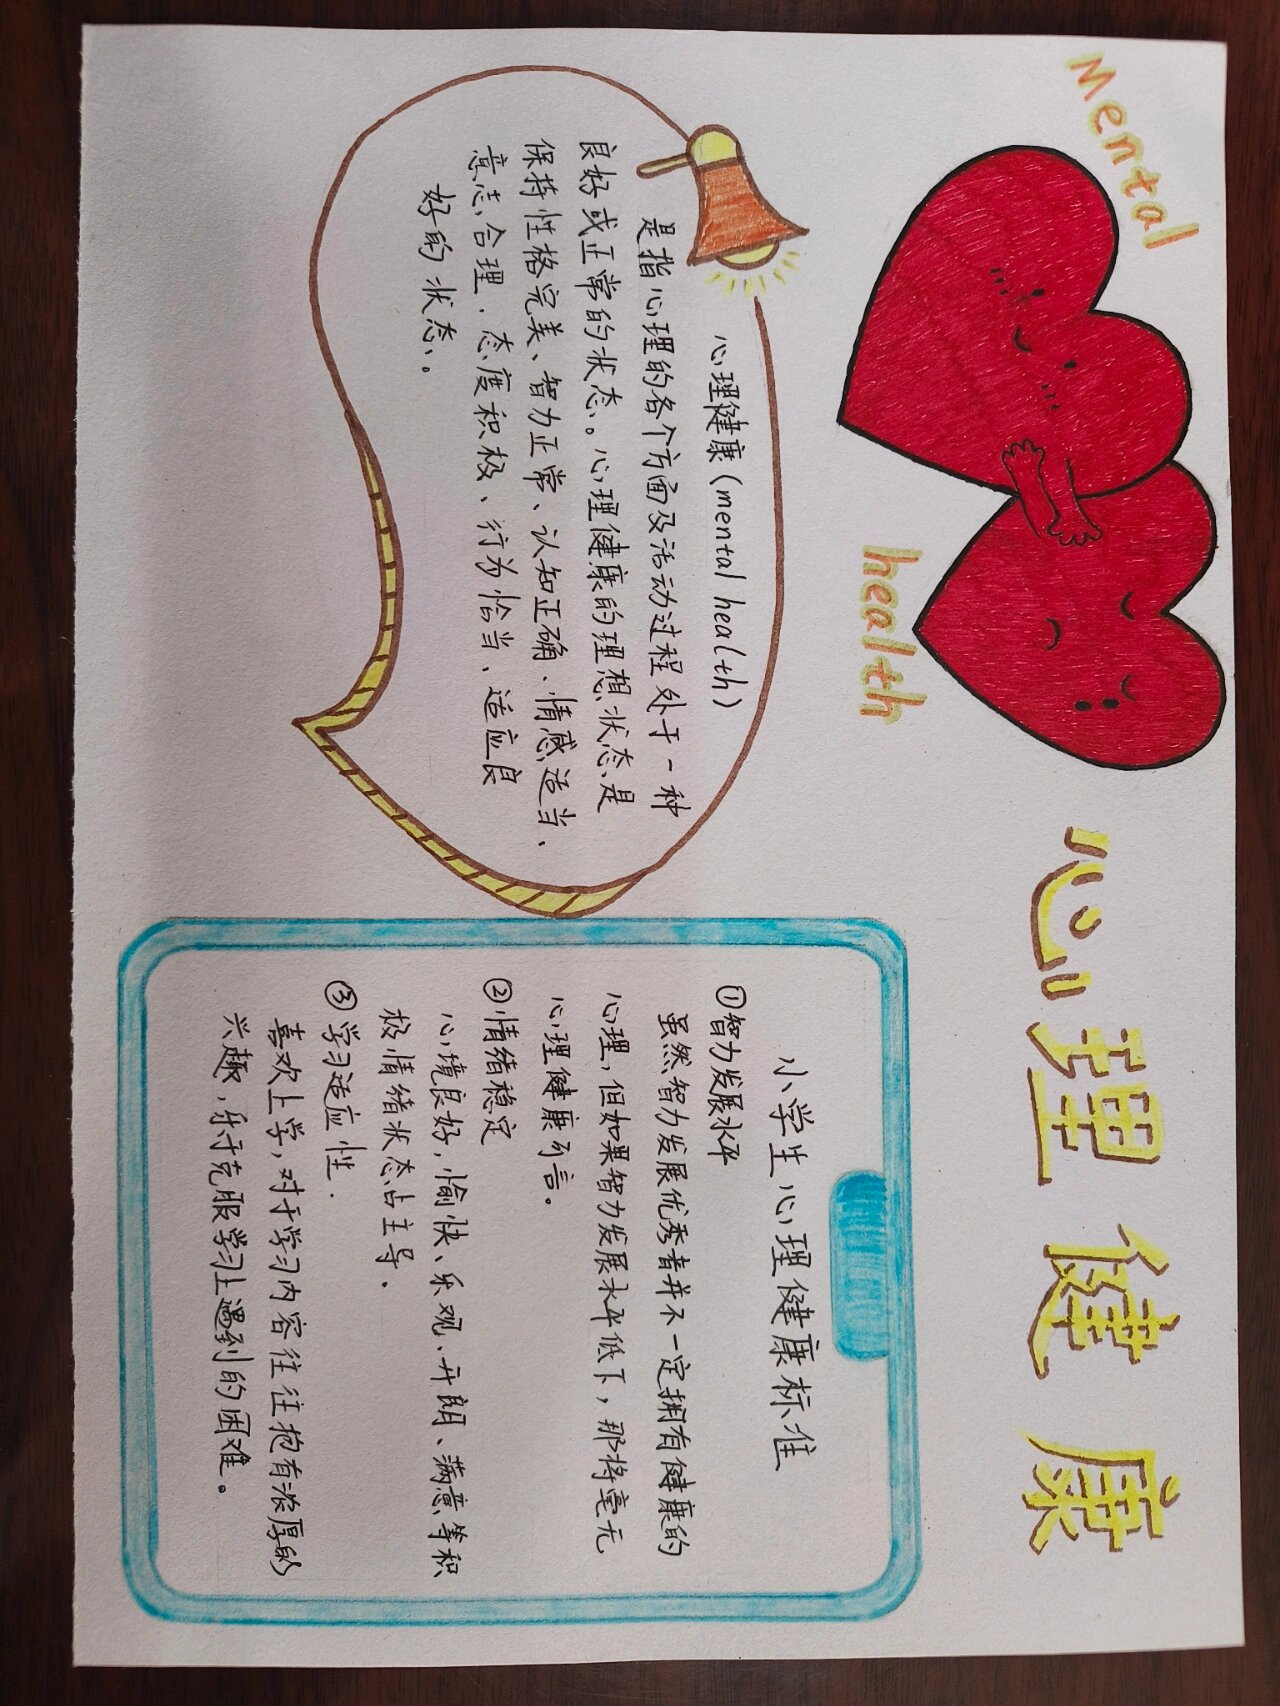 Mental
health
心理健康
心理健康(mental health)
是指心理的各个方面及活动过程处于一种
良好或正常的状态。心理健康的理想状态是
保持性格完美、智力正常、认知正确、情感适当、
意志合理、态度积极、行为恰当、适应良
好的状态。
小学生心理健康标准
①智力发展水平
虽然智力发展优秀者并不一定拥有健康的
心理,但如果智力发展水平低下,那将毫无
心理健康可言。
②情绪稳定
心境良好,愉快、乐观、开朗、满意等积
极情绪状态占主导.
③学习适应性.
喜欢上学,对于学习内容往往抱有浓厚的
兴趣,乐于克服学习上遇到的困难。